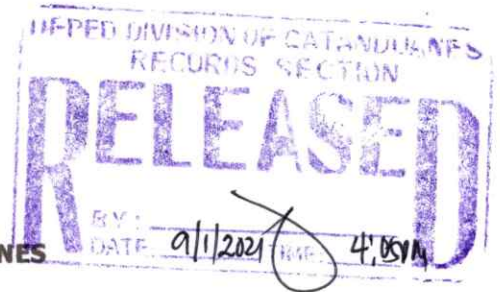 DEPED DIVISION OF CATANDUANES
RECORDS SECTION
RELEASED
BY:
DATE 9/1/2021 TIME: 4:05PM
NES